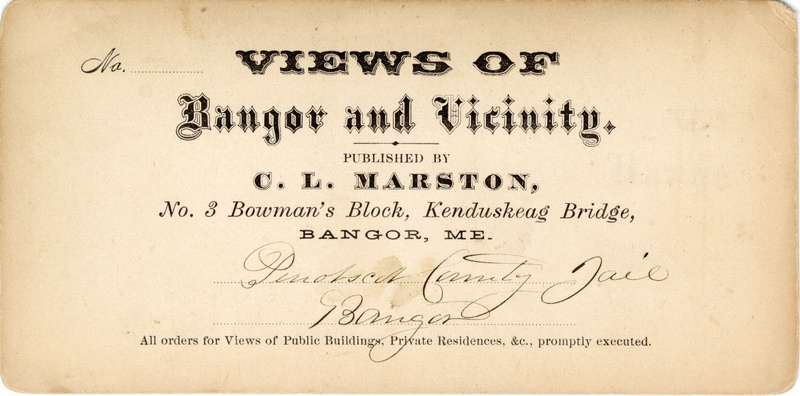 No.
VIEWS OF
Bangor and Vicinity.
PUBLISHED BY
C. L. MARSTON,
No. 3 Bowman's Block, Kenduskeag Bridge,
BANGOR, ME.
Penobscot County Jail
Bangor
All orders for Views of Public Buildings, Private Residences, &c., promptly executed.